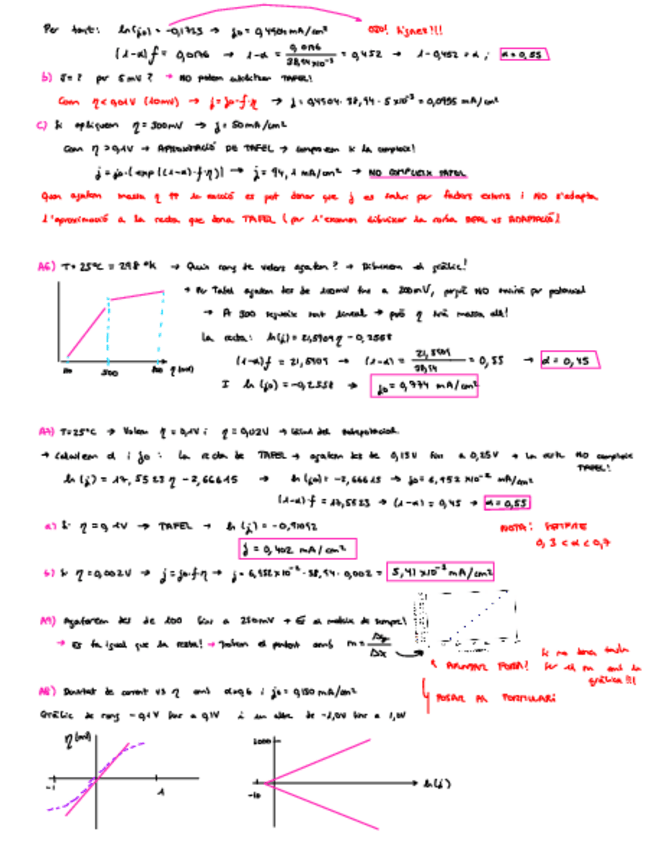 Per tant: ln(j₀) = -0,1723 → j₀ = 0,4904 mA/cm² OJO! Signes!!!
(1-α)f = 0,0176 → 1-α = 0,0176 / 38,94×10⁻³ = 0,452 → 1-0,452 = α; α = 0,55
b) j = ? per 5mV ? → NO podem utilitzar TAFEL!
Com η < 0,01V (10mV) → j = j₀·f·η → j = 0,4904 · 38,94 · 5×10⁻³ = 0,0955 mA/cm²
c) Si apliquem η = 300mV → j = 50mA/cm²
Com η > 0,1V → APROXIMACIÓ DE TAFEL → comprovem si la compleix!
j = j₀·[exp((1-α)·f·η)] → j = 94,1 mA/cm² → NO COMPLEIX TAFEL
Quan agafem massa η ↑↑ la reacció es pot donar que j es salvi per factors externs i NO s'adapta
l'aproximació a la recta que dona TAFEL (per l'examen dibuixar la corba REAL vs ADAPTACIÓ)
A6) T = 25°C = 298°K → Quin rang de valors agafem? → Dibuixem el gràfic!
→ Per Tafel agafem des de 100mV fins a 200mV, perquè NO
→ A 300 segueix sent lineal → però η serà massa alt!
La recta: ln(j) = 21,5909 η - 0,2558
(1-α)f = 21,5909 → (1-α) = 21,5909 / 38,94 = 0,55 → α = 0,45
I ln(j₀) = -0,2558 → j₀ = 0,774 mA/cm²
300 η (mV)
A7) T = 25°C → Volem η = 0,1V i η = 0,02V → Càlcul del sobrepotencial
→ Calculem α i j₀: La recta de TAFEL → agafem des de 0,15V fins a 0,25V → La resta NO compleix
TAFEL!
ln(j) = 17,5523 η - 2,66615 → ln(j₀) = -2,66615 → j₀ = 6,952×10⁻² mA/cm²
(1-α)f = 17,5523 → (1-α) = 0,45 → α = 0,55
a) Si η = 0,1V → TAFEL → ln(j) = -0,91092
NOTA: SEMPRE
j = 0,402 mA/cm²
0,3 < α < 0,7
b) Si η = 0,002V → j = j₀·f·η → j = 6,952×10⁻² · 38,94 · 0,002 = 5,41×10⁻³ mA/cm²
A9) Agafarem des de 100 fins a 250mV → És el mateix de sempre!
→ Es fa igual que la resta! → Trobem el pendent amb m = Δy / Δx
APUNTAR FORA! Si no dona
fer el m amb la
gràfica!!!
POSAR AL FORMULARI
A8) Densitat de corrent vs η amb α = 0,6 i j₀ = 0,150 mA/cm²
Gràfic de rang -0,1V fins a 0,1V i un altre de -1,0V fins a 1,0V
η (mV)
-1 1
1000
-10
ln(j)